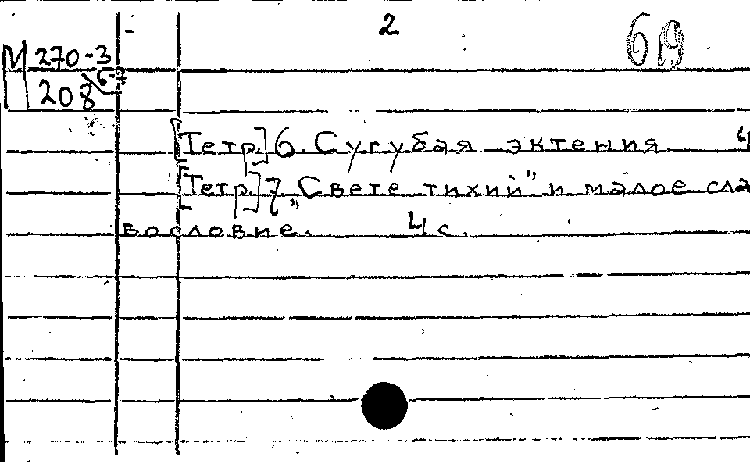 2
619
М 270-3
6-7
208
[Тетр.] 6. Сугубая эктения 4
[Тетр.] 7. „Свете тихий" и малое сла
вословие. 4 с.